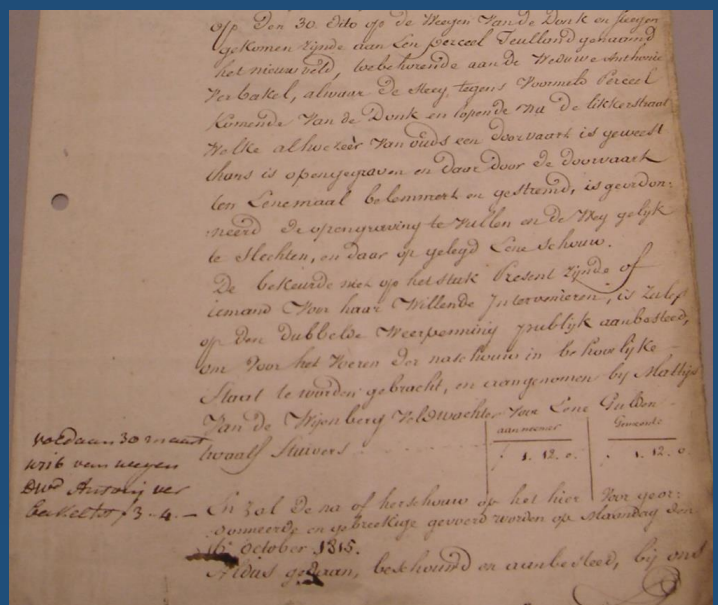 op Den 30. dito op de Weegen Van de Donk en
gekomen zijnde aan Een perceel Teulland genaamd
het nieuwveld, toebehorende aan de Weduwe Anthonie
Verbakel, alwaar de Steeg, tegens Voormeld Perceel
Komende Van de Donk en lopende na de likkerstraat
Welke alhoezeer Van ouds een doorvaart is geweest
thans is opengegraven en daar door de doorvaart
ten Eenemaal belemmert en gestremd, is geordon:
:neerd de opengraving te Vullen en de Weg gelijk
te slechten, en daar op gelegd Eene Schouw.
De bekeurde niet op het stuk Present zijnde of
iemand Voor haar Willende Intervenieren, is
op den dubbelde Weerpenning publyk aanbesteed,
om Voor het Voeren der naschouw in behoorlyke
Staat te worden gebragt, en aangenomen by Mathijs
Van de Wijenberg Veldwachter Voor Eene Gulden
twaalf Stuivers
aanneemer
Gemeente
1. 12. 0.
1. 12. 0.
voldaan 30 maart
weegen
Antonij ver
bakel tot f 3-4-
En zal de na of herschouw op het hier Voor geor:
:donneerde en gebreekige gevoerd worden op Maandag den
16 October 1815.
Aldus gedaan, beschouwd en aanbesteed, bij ons